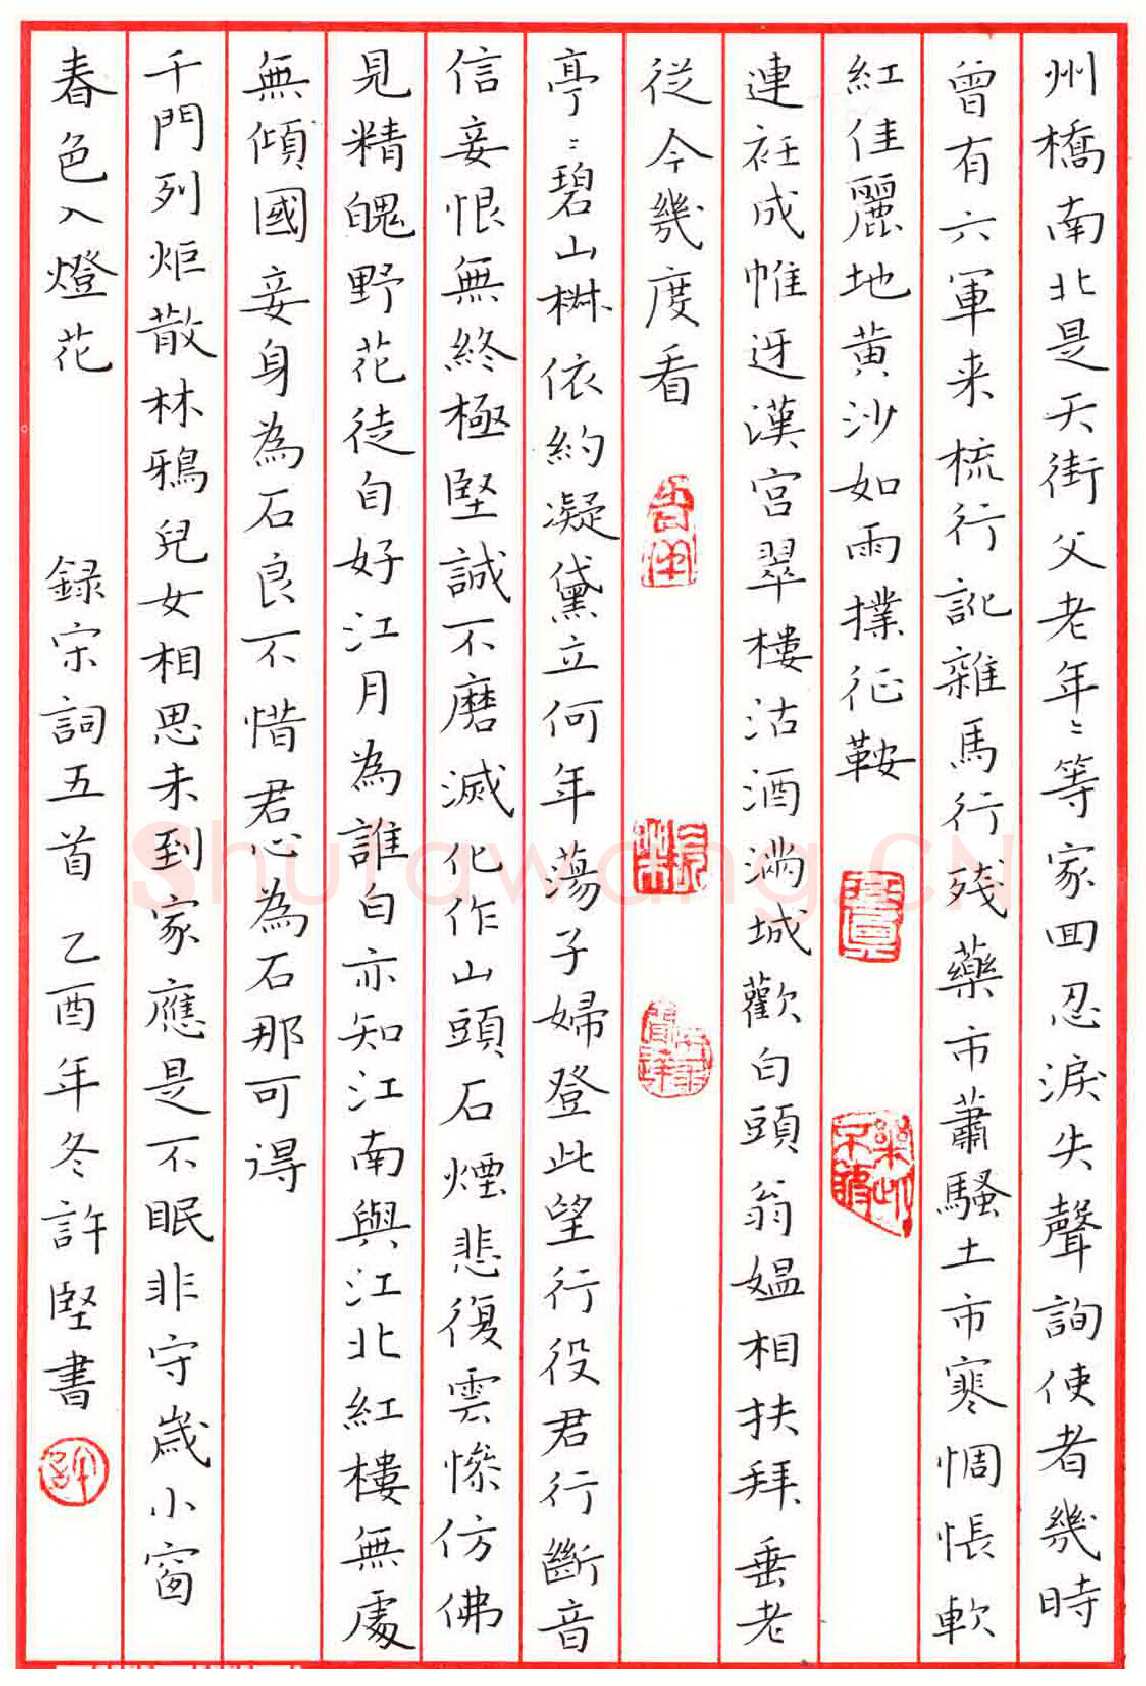 州橋南北是天街父老年〻等家回忍淚失聲詢使者幾時
曾有六軍来梳行訛雜馬行残藥市蕭騷土市寒惆悵軟
紅佳麗地黄沙如雨撲征鞍
連衽成帷迓漢宫翠樓沽酒滿城歡白頭翁媪相扶拜垂老
從今幾度看
亭〻碧山椒依約凝黛立何年蕩子婦登此望行役君行斷音
信妾恨無終極堅誠不磨滅化作山頭石煙悲復雲慘仿佛
見精魄野花徒自好江月為誰白亦知江南與江北紅樓無處
無傾國妾身為石良不惜君心為石那可得
千門列炬散林鴉兒女相思未到家應是不眠非守歲小窗
春色入燈花 録宋詞五首 乙酉年冬許堅書
Shufawang.CN